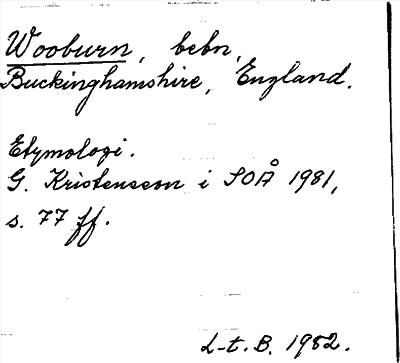 Wooburn, bebn,
Buckinghamshire, England.
Etymologi.
G. Kristensson i SOÅ 1981,
s. 77 ff.
L-t. B. 1982.